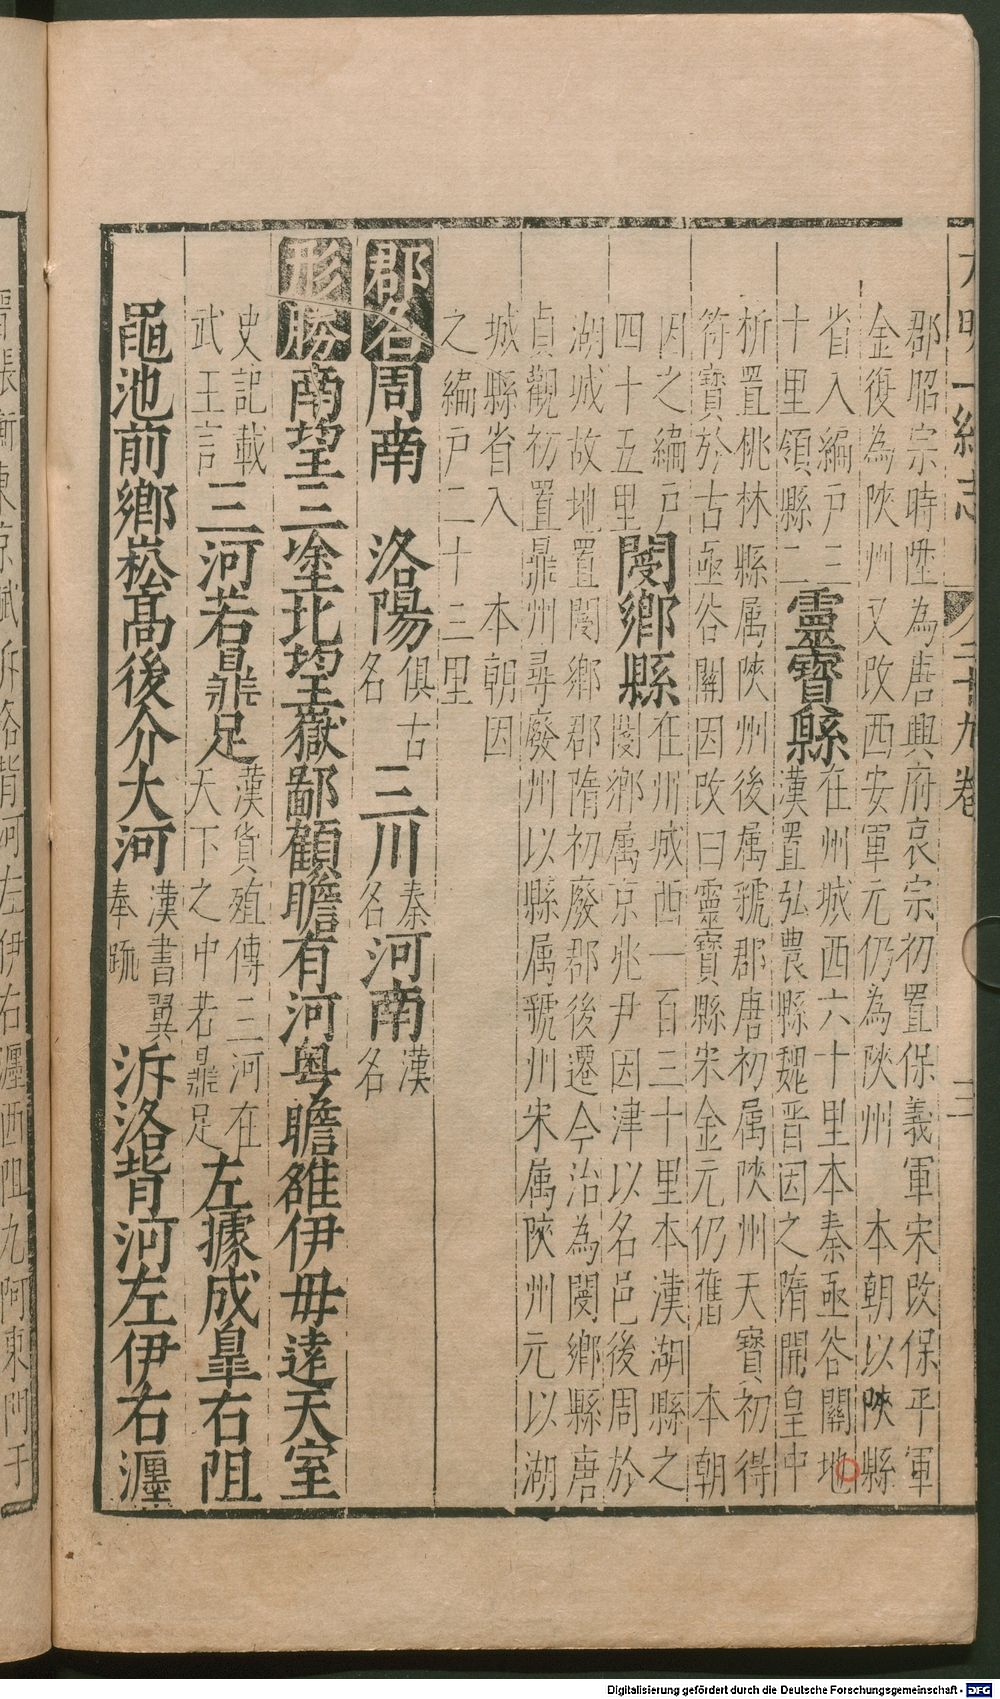 大明一統志 二十九卷 三
郡昭宗時陞為唐興府哀宗初置保義軍宋改保平軍
金復為陝州又改西安軍元仍為陝州 本朝以陝縣
省入編户三
十里領縣二
靈寶縣
在州城西六十里本秦函谷關地
漢置弘農縣魏晋因之隋開皇中
析置桃林縣属陝州後属虢郡唐初属陝州天寶初得
符寶於古函谷關因改曰靈寶縣宋金元仍舊 本朝
因之編户
四十五里
閿鄉縣
在州城西一百三十里本漢湖縣之
閿鄉属京兆尹因津以名邑後周於
湖城故地置閿鄉郡隋初廢郡後遷今治為閿鄉縣唐
貞觀初置鼎州尋廢州以縣属虢州宋属陝州元以湖
城縣省入 本朝因
之編户二十三里
郡名 周南 洛陽 俱古名 三川 秦名 河南 漢名
形勝 南望三塗北望嶽鄙顧瞻有河粤瞻雒伊毋逺天室
史記載武王言 三河若鼎足 漢貨殖傳三河在天下之中若鼎足 左據成皐右阻
黽池前鄉崧髙後介大河 漢書翼奉䟽 泝洛背河左伊右瀍
張衡東京賦泝洛背河左伊右瀍西阻九阿東門于
Digitalisierung gefördert durch die Deutsche Forschungsgemeinschaft - DFG